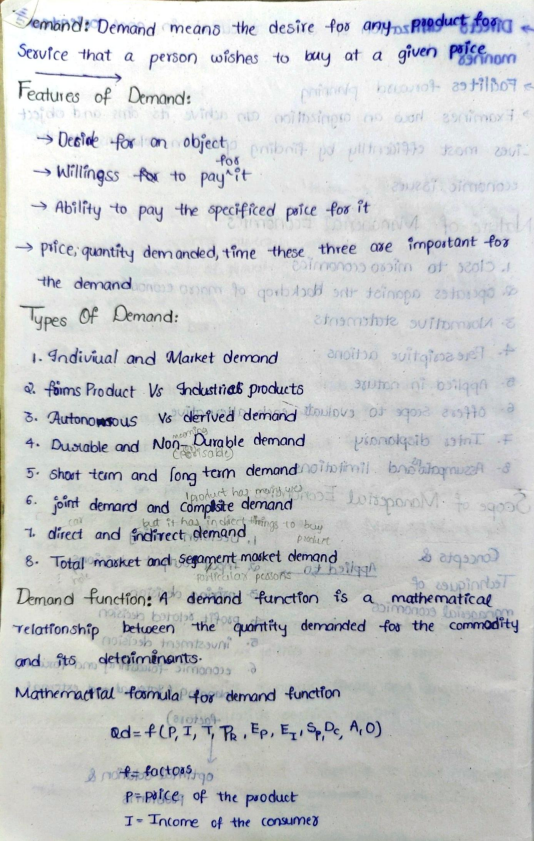 Demand: Demand means the desire for any product for
Service that a person wishes to buy at a given price
Features of Demand:
→ Deside for an object
→ Willingss for to pay for it
→ Ability to pay the specificed price for it
→ price, quantity demanded, time these three are important for
the demand
Types Of Demand:
1. Indiviual and Market demand
2. firms Product Vs Industrial products
3. Autonomous Vs derived demand
4. Durable and Non-Durable demand
5. Short term and long term demand
1 product has
6. joint demand and complete demand
but it has indirect things to buy
7. direct and indirect demand
product
8. Total market and segament market demand
Demand function: A demand function is a mathematical
relationship between the quantity demanded for the commodity
and its detniminants.
Mathemactial formula for demand function
Qd = f (P, I, T, PR, EP, EI, SP, DC, A, O)
f = factors
P = price of the product
I = Income of the consumer